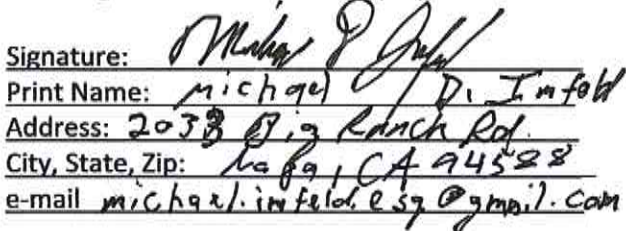 Signature:
Print Name: Michael D. Imfeld
Address: 2033 Big Ranch Rd.
City, State, Zip: Napa, CA 94588
e-mail michael.imfeld.esq@gmail.com